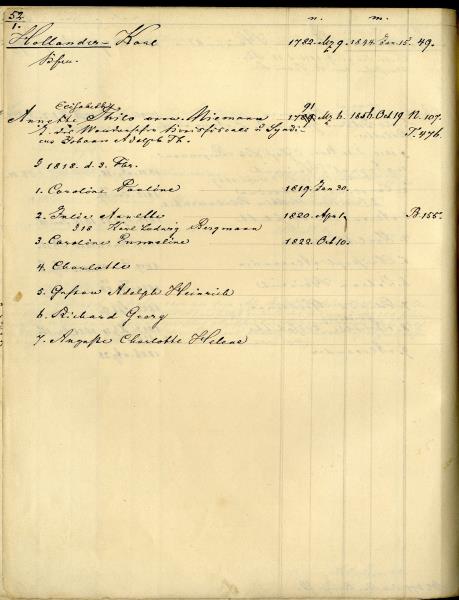 52.
1.
n. m.
Hollander - Karl 1782. Mz 9. 1844. Jan. 15. 49.
Elisabeth 91
Annette Thilo verw. Niemann 1789. Mz 6. 1856. Oct 19 N. 107.
T. 476.
Johann Adolph Th.
1818. d. 3. Fbr.
1. Caroline Pauline 1819. Jan 30.
2. Julie Annette 1820. Apr 1 B. 155.
18 Karl Ludwig Bergmann
3. Caroline Emmeline 1822. Oct 10.
4. Charlotte
5. Gustav Adolph Heinrich
6. Richard Georg
7. Auguste Charlotte Helene